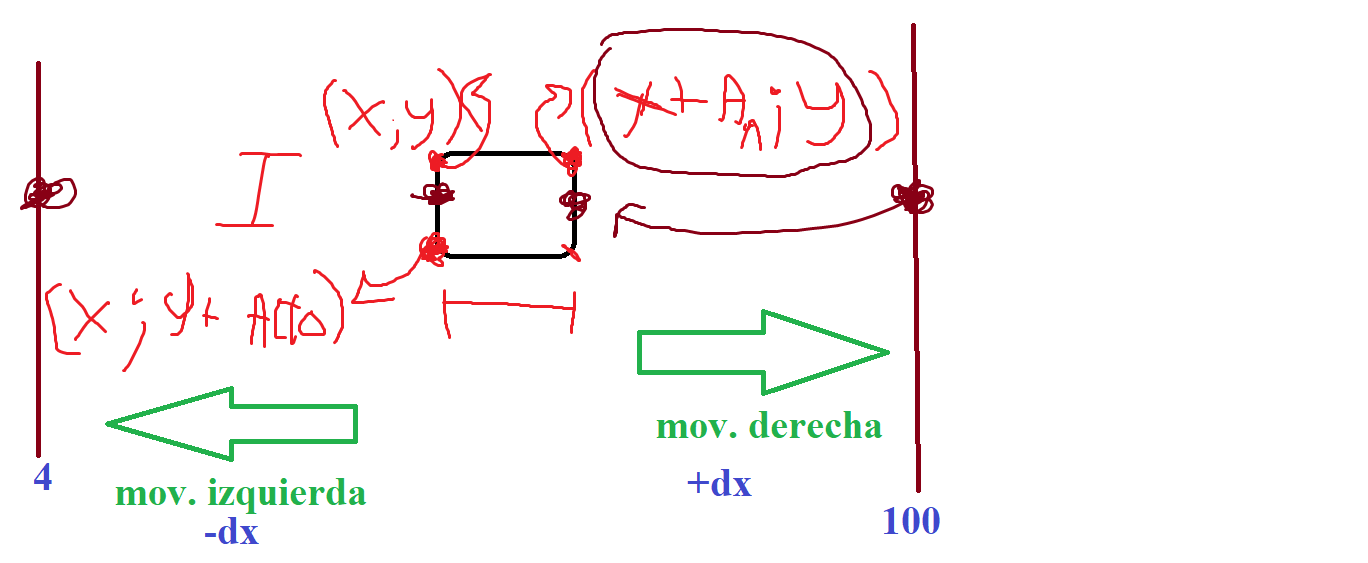 (x,y)
(x+An;y)
I
(x;y+Alto)
mov. derecha
4
mov. izquierda
+dx
-dx
100